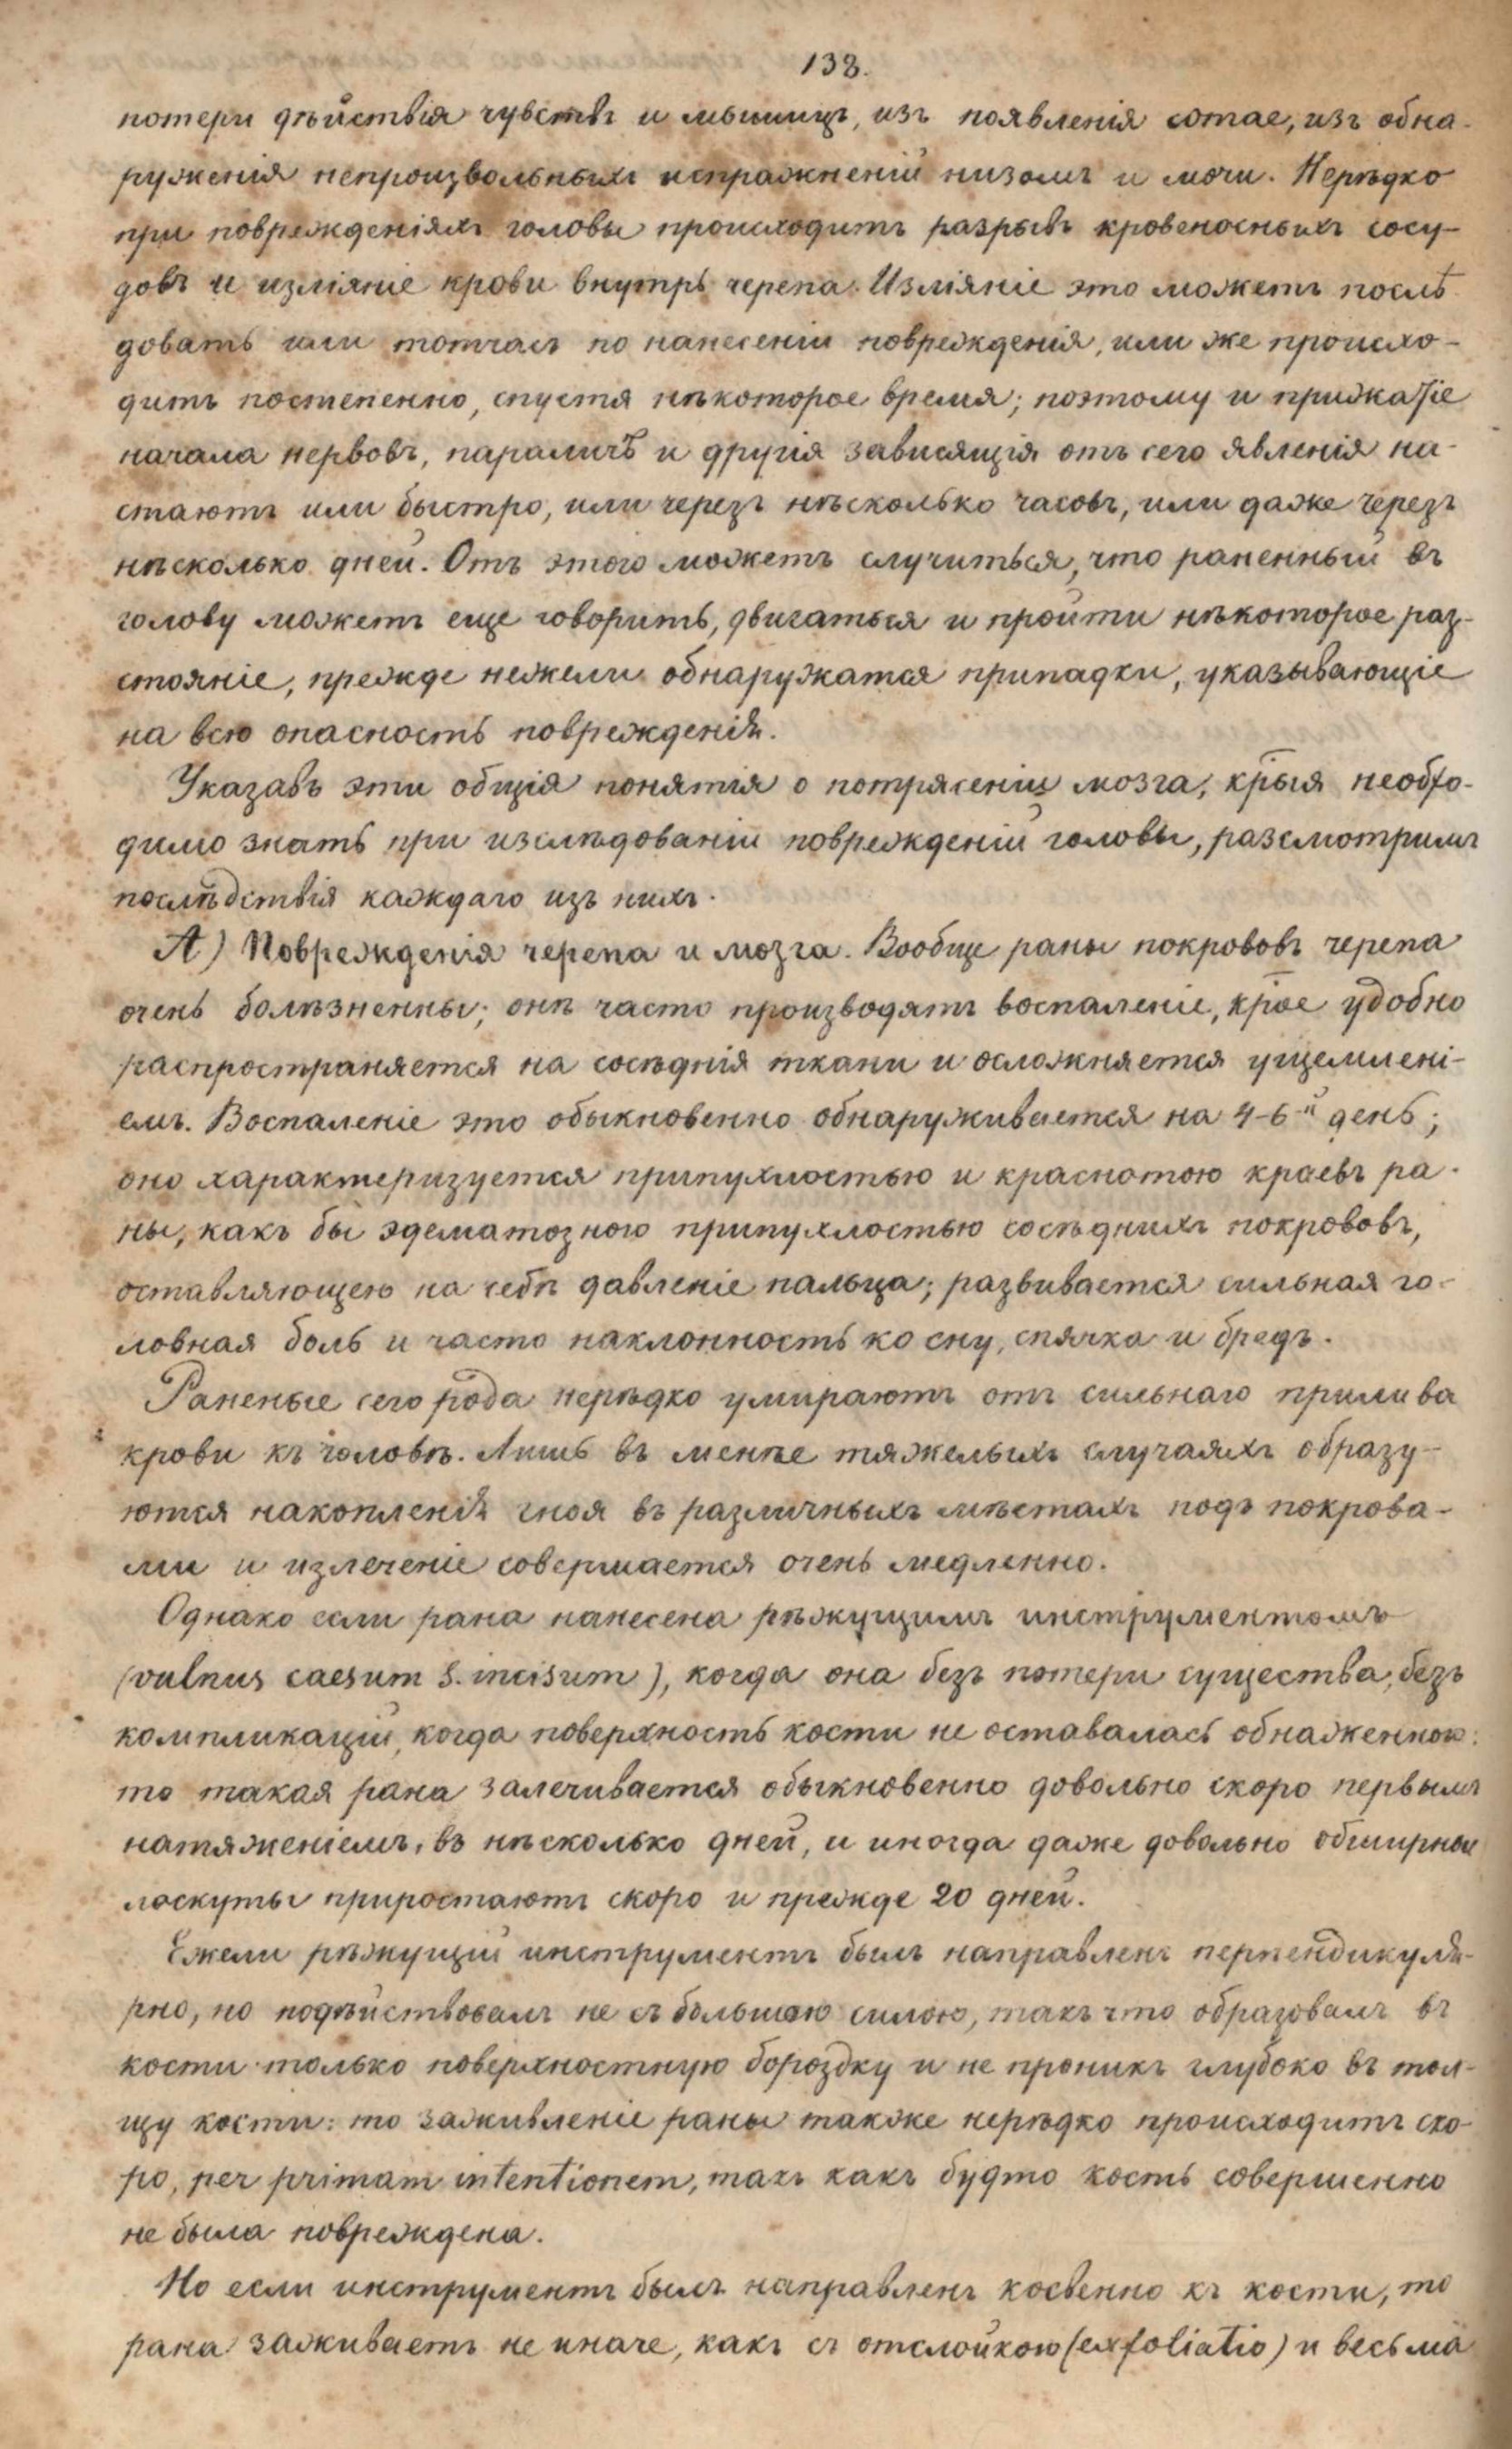 138.
потери дѣйствія чувствъ и мышицъ, изъ появленія comae, изъ обна-
руженія непроизвольныхъ испражненій низомъ и мочи. Нерѣдко
при поврежденіяхъ головы происходитъ разрывъ кровеносныхъ сосу-
довъ и изліяніе крови внутрь черепа. Изліяніе это можетъ послѣ
довать или тотчасъ по нанесеніи поврежденія, или же происхо-
дить постепенно, спустя нѣкоторое время; поэтому и прижатіе
начала нервовъ, параличъ и другія зависящія отъ сего явленія на-
стаютъ или быстро, или черезъ нѣсколько часовъ, или даже черезъ
нѣсколько дней. Отъ этого можетъ случиться, что раненный въ
голову можетъ еще говорить, двигаться и пройти нѣкоторое раз-
стояніе, прежде нежели обнаружатся припадки, указывающіе
на всю опасность поврежденія.
Указавъ эти общія понятія о потрясеніи мозга, крыя необхо-
димо знать при изслѣдованіи поврежденій головы, разсмотримъ
послѣдствія каждаго изъ нихъ.
А) Поврежденія черепа и мозга. Вообще раны покрововъ черепа
очень болѣзненны; онѣ часто производятъ воспаленіе, крое удобно
распространяется на сосѣднія ткани и осложняется ущемлені-
емъ. Воспаленіе это обыкновенно обнаруживается на 4-6-й день;
оно характеризуется припухлостью и краснотою краевъ ра-
ны, какъ бы эдематозною припухлостью сосѣднихъ покрововъ,
оставляющею на себѣ давленіе пальца; развивается сильная го-
ловная боль и часто наклонность ко сну, спячка и бредъ.
Раненые сего рода нерѣдко умираютъ отъ сильнаго прилива
крови къ головѣ. Лишь въ менѣе тяжелыхъ случаяхъ образу-
ются накопленія гноя въ различныхъ мѣстахъ подъ покрова-
ми и излеченіе совершается очень медленно.
Однако если рана нанесена рѣжущимъ инструментомъ
(vulnus caesum s. incisum), когда она безъ потери существа, безъ
компликацій, когда поверхность кости не оставалась обнаженною:
то такая рана залечивается обыкновенно довольно скоро первымъ
натяженіемъ, въ нѣсколько дней, и иногда даже довольно обширные
лоскуты приростаютъ скоро и прежде 20 дней.
Ежели рѣжущій инструментъ былъ направленъ перпендикуля-
рно, но подѣйствовалъ не съ большою силою, такъ что образовалъ въ
кости только поверхностную бороздку и не проникъ глубоко въ тол-
щу кости: то заживленіе раны также нерѣдко происходитъ ско-
ро, per primam intentionem, такъ какъ будто кость совершенно
не была повреждена.
Но если инструментъ былъ направленъ косвенно къ кости, то
рана заживаетъ не иначе, какъ съ отслойкою (exfoliatio) и весьма